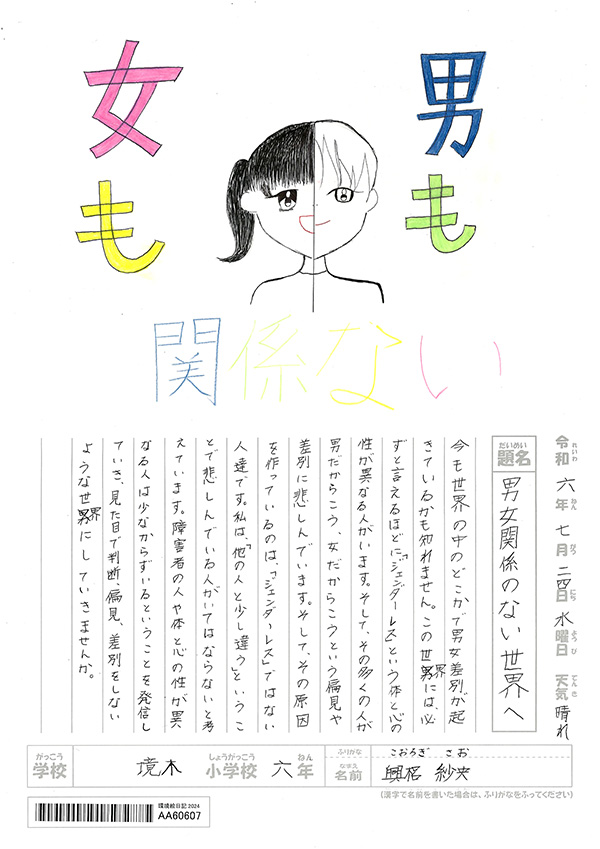 男も
女も
関係ない
令和六年七月二四日水曜日 天気 晴れ
れいわ ねん がつ にち ようび てんき
だいめい
題名 男女関係のない世界へ
今も世界の中のどこかで男女差別が起
きているかも知れません。この世界には、必
ずと言えるほどに「ジェンダーレス」という体と心の
性が異なる人がいます。そして、その多くの人が
男だからこう、女だからこうという偏見や
差別に悲しんでいます。そして、その原因
を作っているのは、「ジェンダーレス」ではない
人達です。私は、「他の人と少し違う」というこ
とで悲しんでいる人がいてはならないと考
えています。障害者の人や体と心の性が異
なる人は少なからずいるということを発信し
ていき、見た目で判断、偏見、差別をしない
ような世界にしていきませんか。
がっこう しょうがっこう ねん
学校 境木 小学校 六年
ふりがな こおろぎ さお
なまえ
名前 興梠 紗央
(漢字で名前を書いた場合は、ふりがなをふってください)
環境絵日記 2024
AA60607